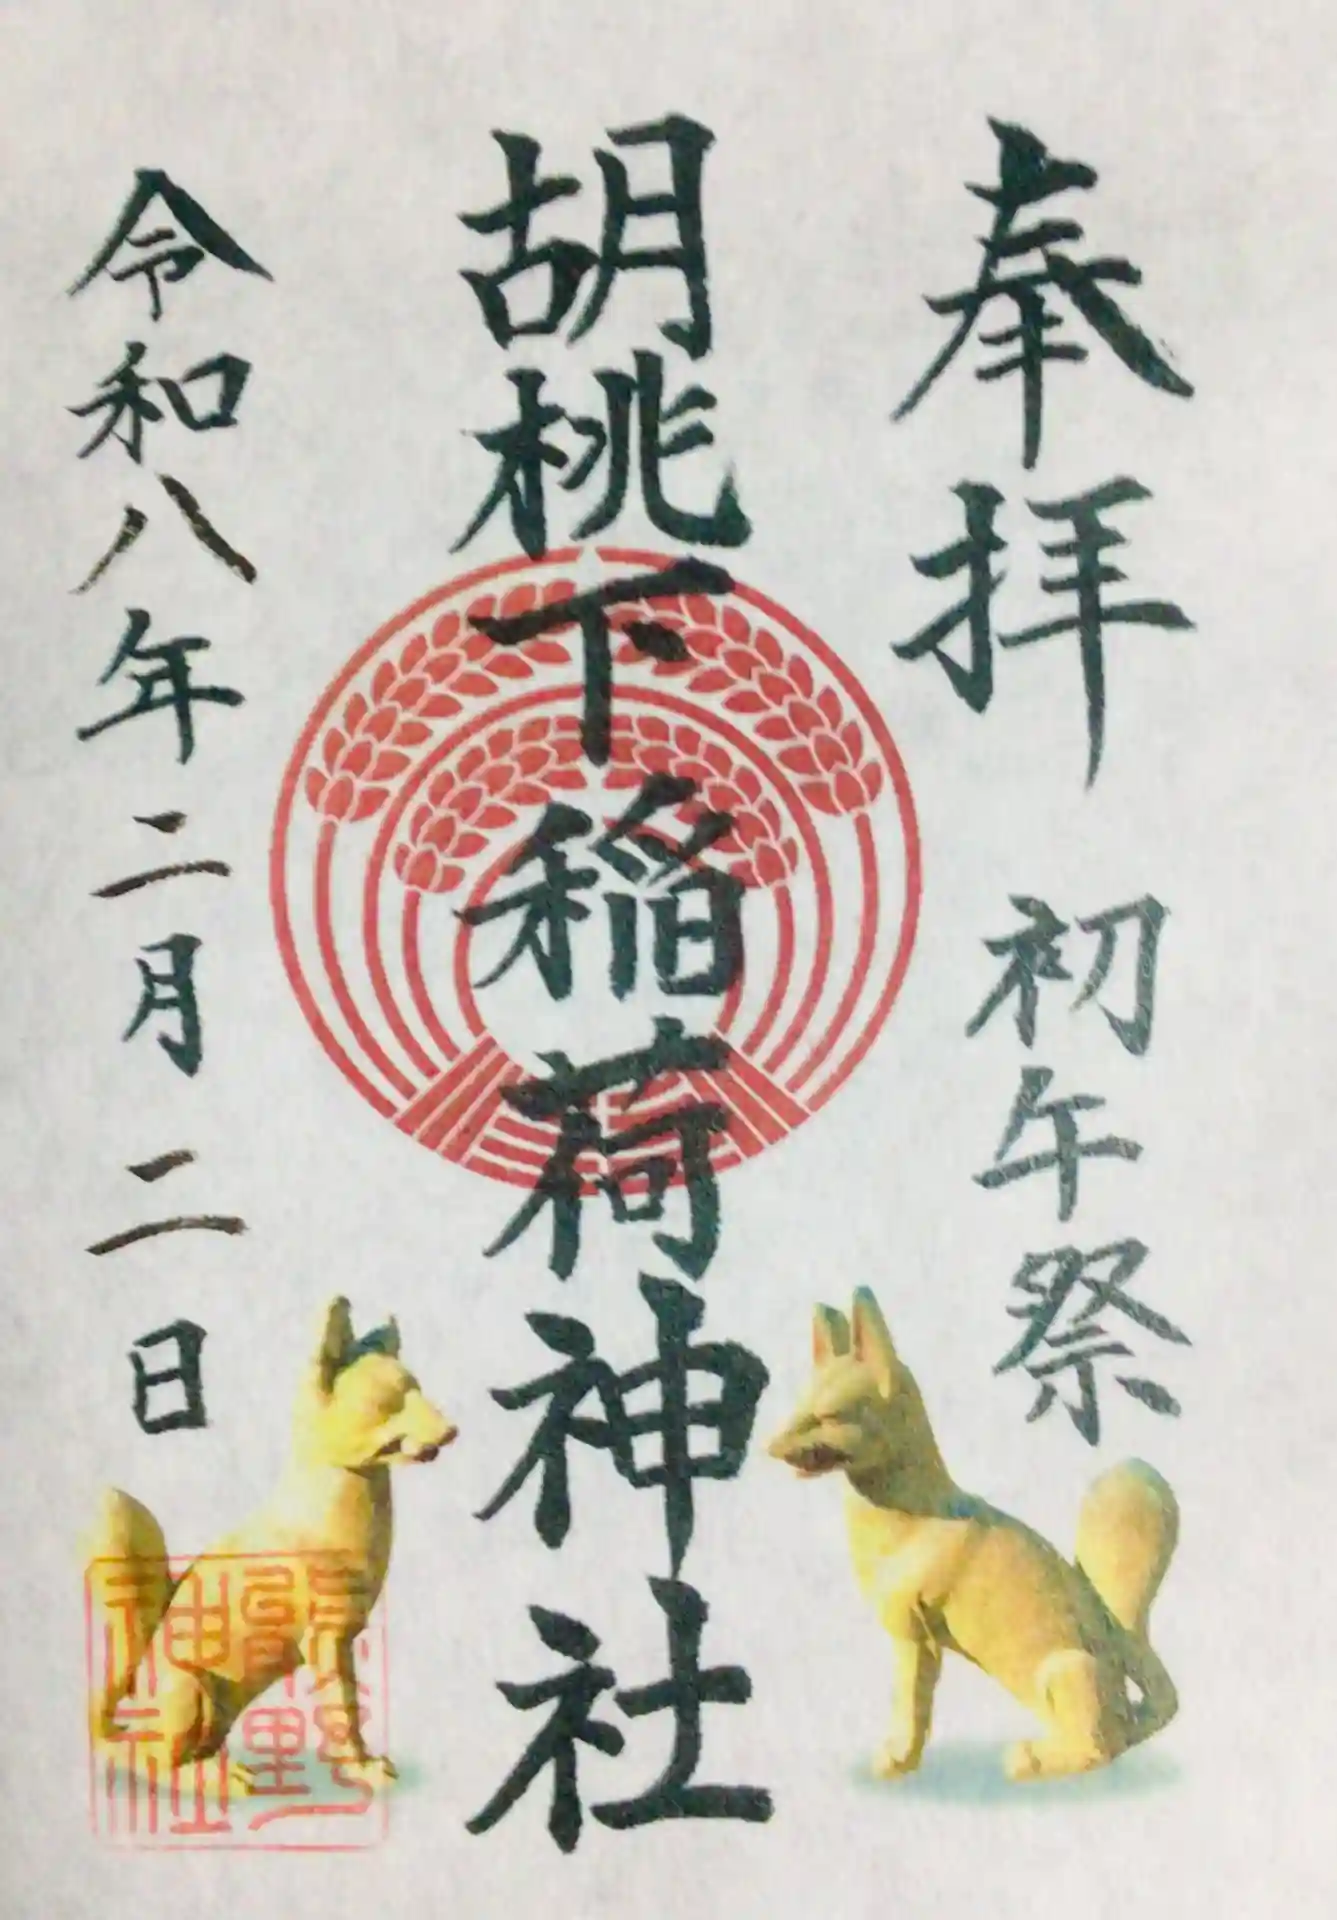 奉拝 初午祭
胡桃下稲荷神社
令和八年二月二日
熊野
神社